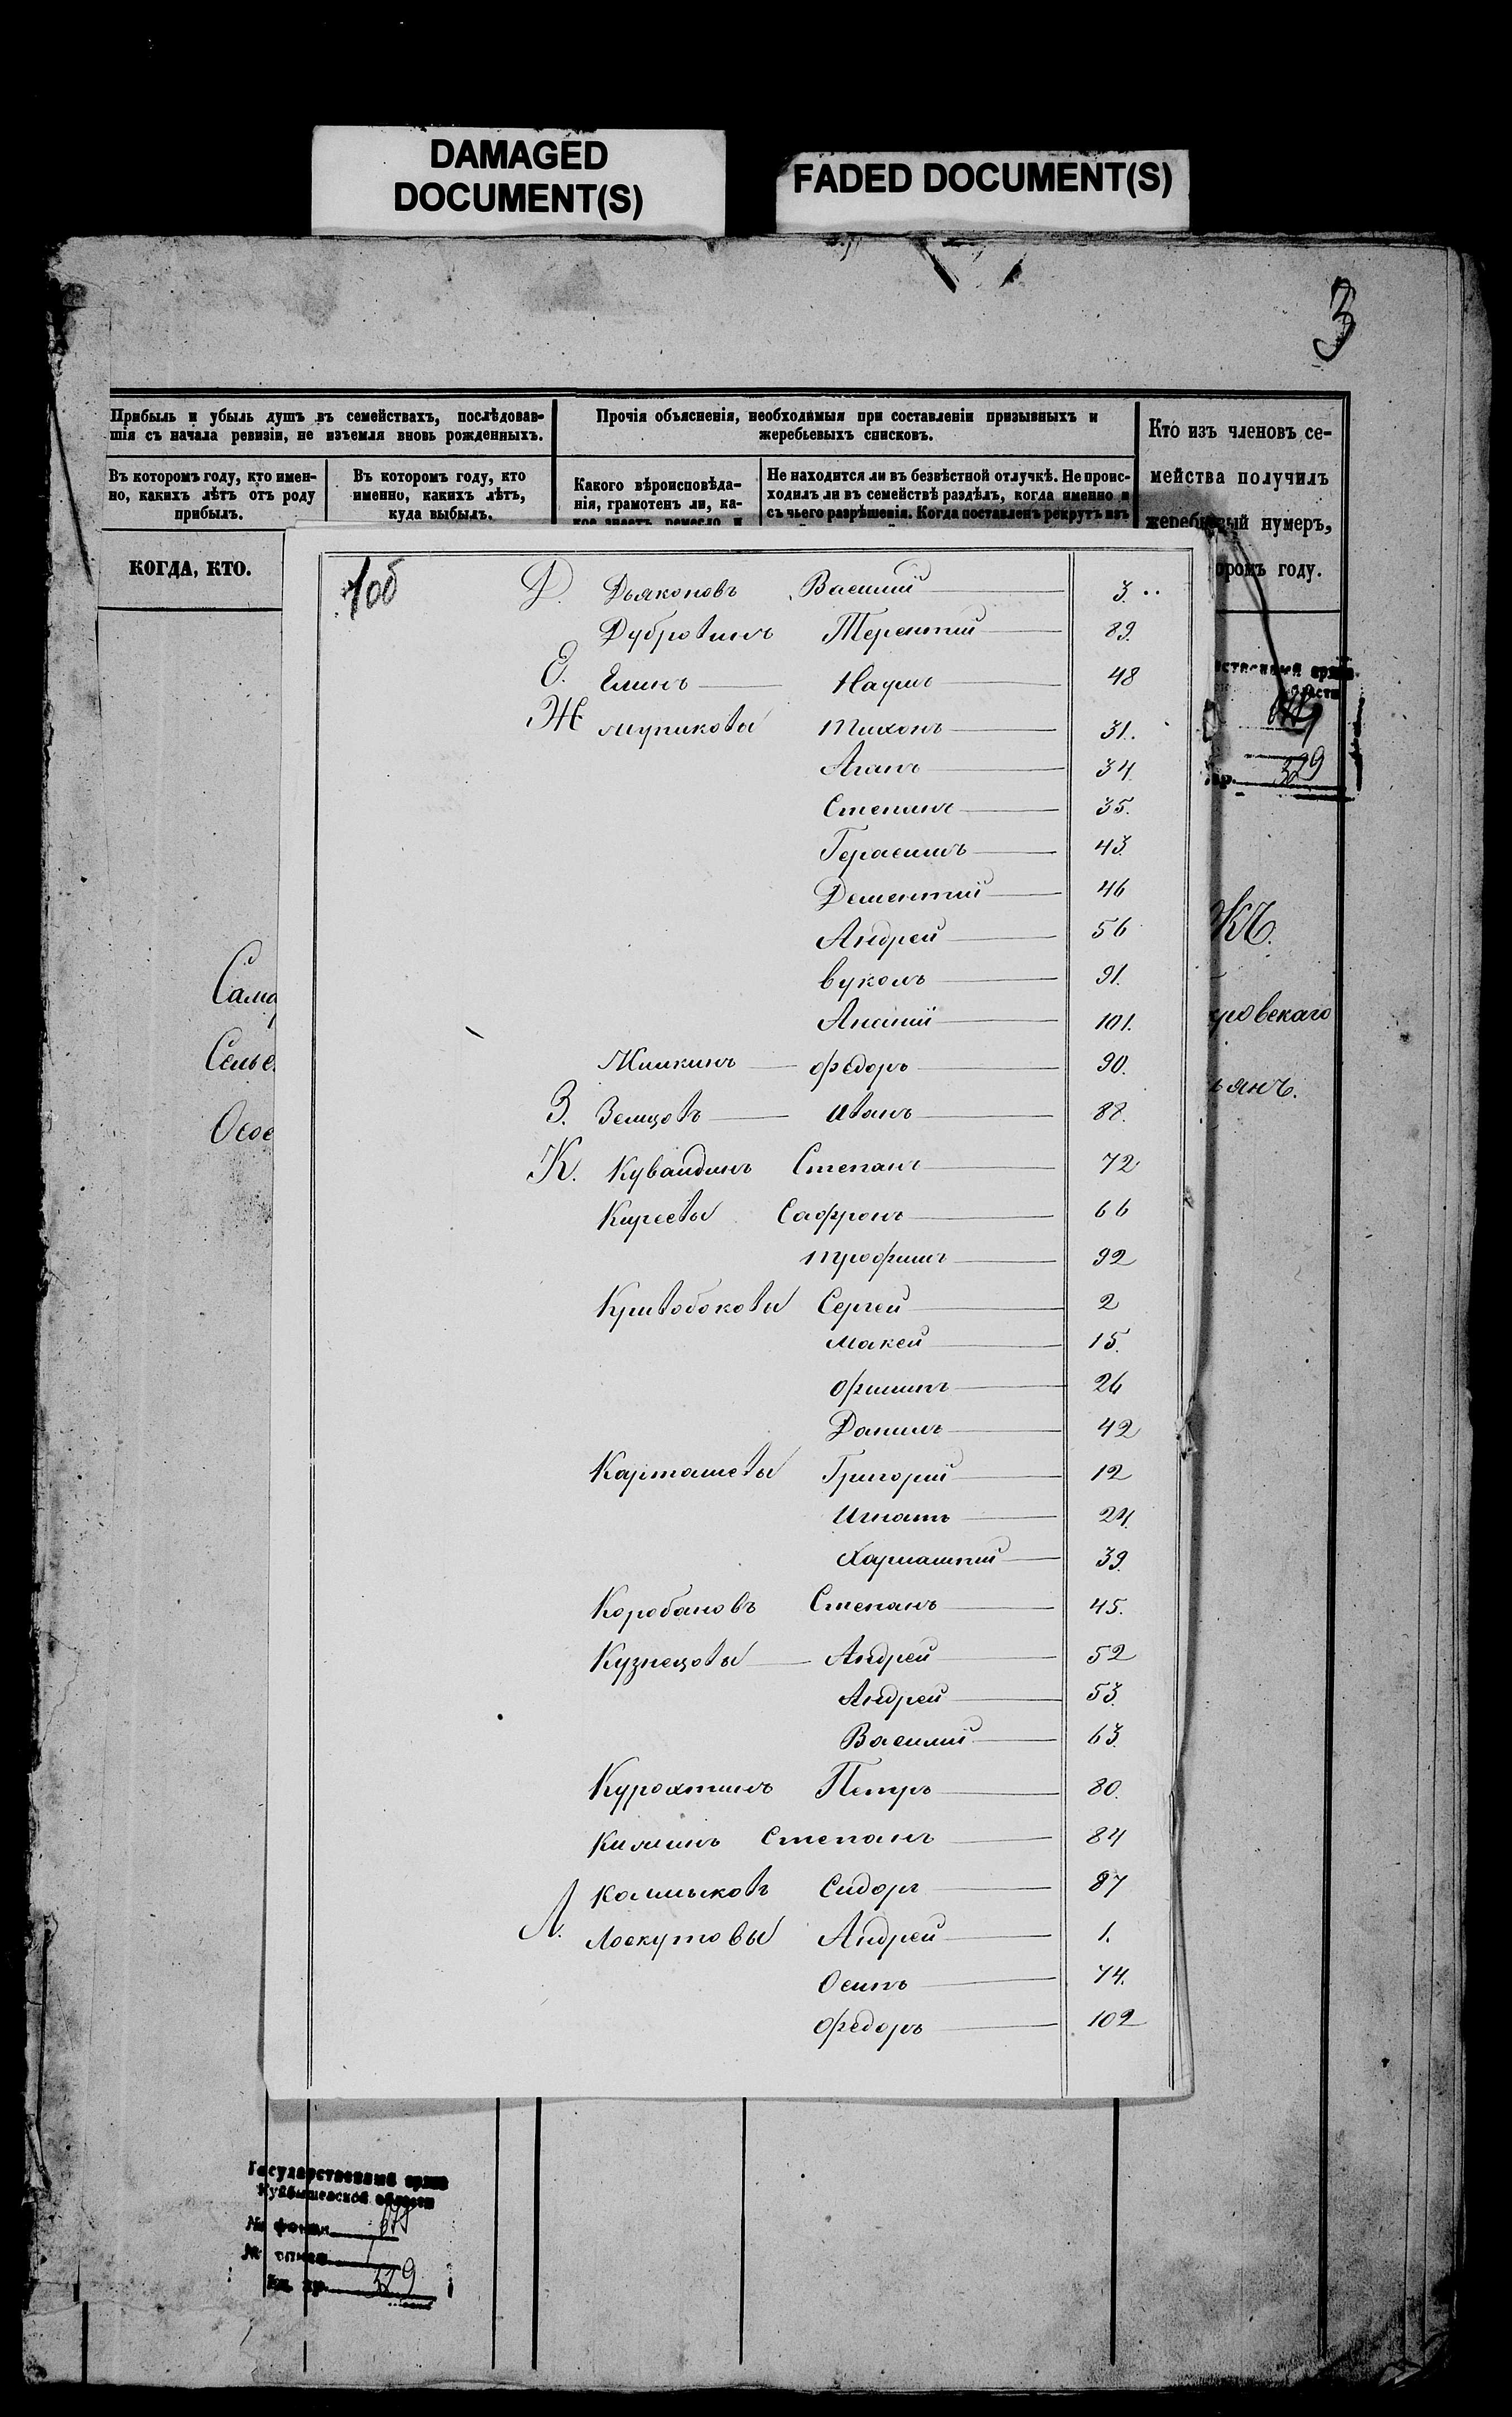 DAMAGED
DOCUMENT(S)
FADED DOCUMENT(S)
3
Прибыль и убыль душъ въ семействахъ, послѣдовав-
шія съ начала ревизіи, не изъемля вновь рожденныхъ.
Въ которомъ году, кто имен-
но, какихъ лѣтъ отъ роду
прибылъ.
Въ которомъ году, кто
именно, какихъ лѣтъ,
куда выбылъ.
КОГДА, КТО.
Прочія объясненія, необходимыя при составленіи призывныхъ и
жеребьевыхъ списковъ.
Какого вѣроисповѣда-
нія, грамотенъ ли, ка-
кое знаетъ ремесло и
Не находится ли въ безвѣстной отлучкѣ. Не проис-
ходилъ ли въ семействѣ раздѣлъ, когда именно и
съ чьего разрѣшенія. Когда поставленъ рекрутъ изъ
Кто изъ членовъ се-
мейства получилъ
жеребьевый нумеръ,
оромъ году.
1об
Д. Дьяконовъ Василий 3.
Дубровинъ Терентий 89.
Е. Елинъ Наумъ 48
Ж Жупиковы Тихонъ 31.
Агапъ 34
Степанъ 35.
Герасимъ 43.
Дементий 46
Андрей 56
Вуколъ 91.
Ананий 101.
Жилкинъ Федоръ 90.
З. Земцовъ Иванъ 88.
К. Кувайдинъ Степанъ 72
Киреевы Сафронъ 66
Трофимъ 92
Кривобоковы Сергей 2
Макей 15.
Фролъ 26
Данилъ 42
Карташевы Григорий 12
Игнатъ 24.
Харлампий 39.
Коробановъ Степанъ 45.
Кузнецовы Андрей 52
Андрей 53.
Василий 63.
Куроктинъ Петръ 80.
Килинъ Степанъ 84
Калмыковъ Сидоръ 87
Л. Лоскутовы Андрей 1.
Осипъ 74.
Федоръ 102
Сама
Селье
Осое
КЪ.
уровскаго
ьянъ.
329
Государственный архив
Куйбышевской области
№ фонда
№ описи
Ед. хр. 329